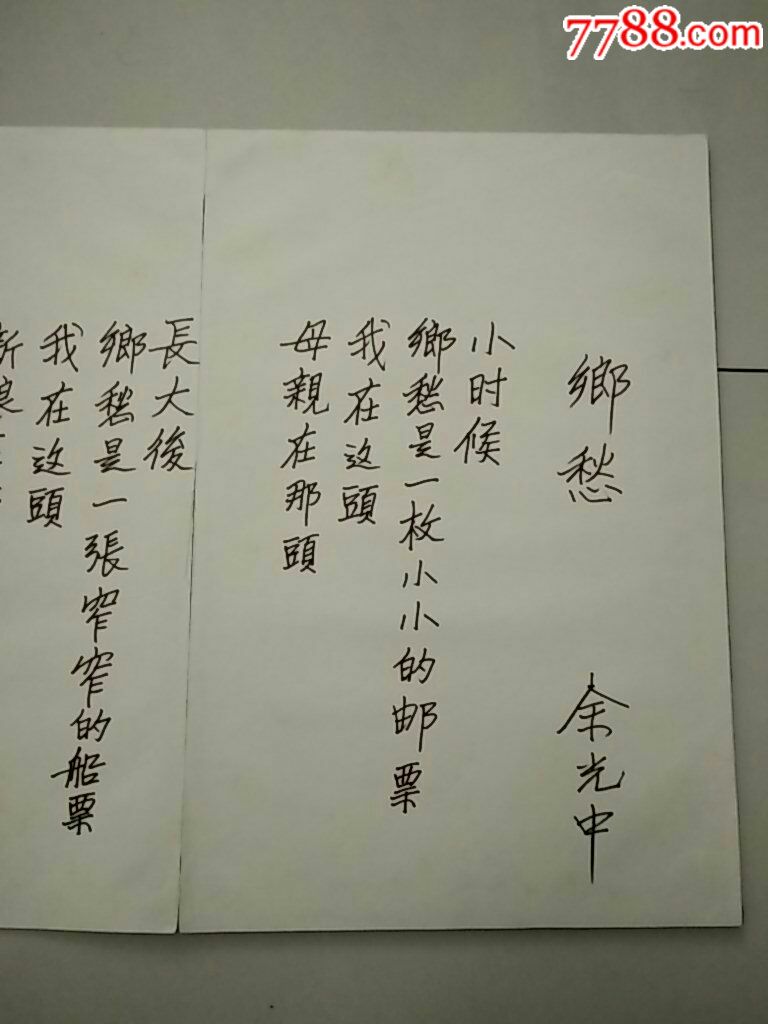 7788.com
鄉愁
余光中
小时候
鄉愁是一枚小小的邮票
我在这頭
母親在那頭
長大後
鄉愁是一張窄窄的船票
我在这頭
新娘